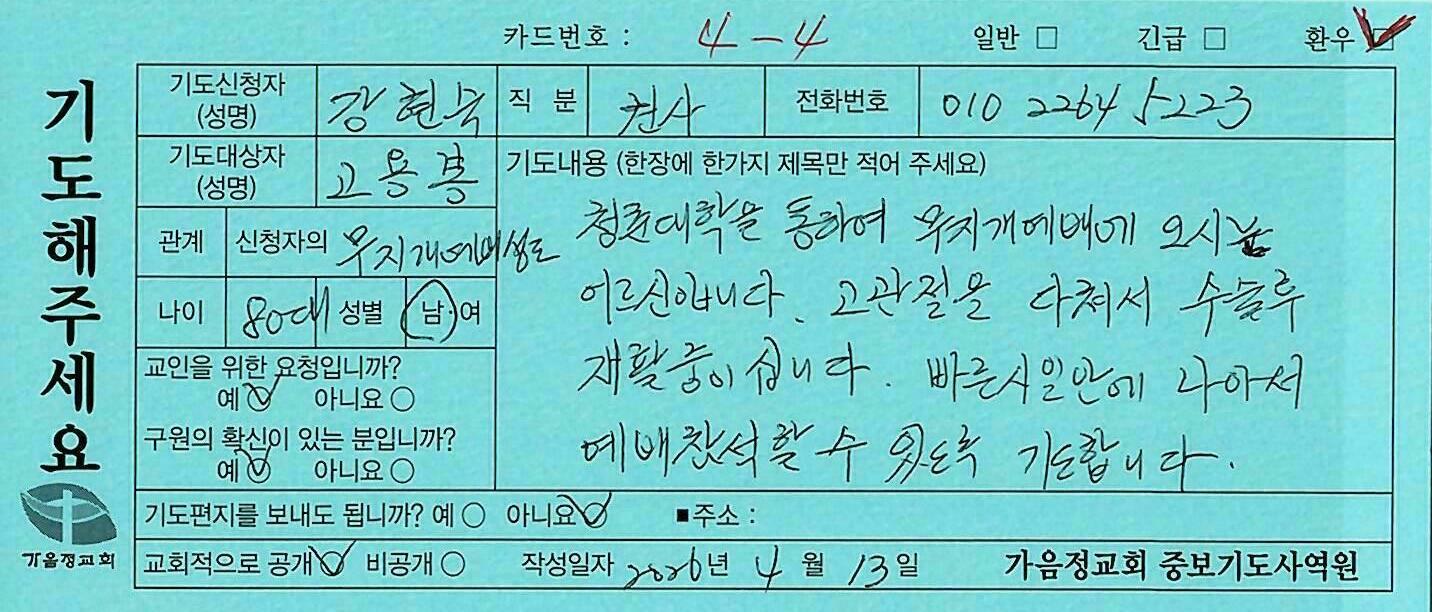 카드번호 : 4-4 일반 □ 긴급 □ 환우 ☑
기도해주세요
기도신청자 (성명) 강현숙 직 분 권사 전화번호 010 2264 5223
기도대상자 (성명) 고용
기도내용 (한장에 한가지 제목만 적어 주세요)
관계 신청자의 무지개예배성도
나이 80대 성별 남·여
청춘대학을 통하여 무지개예배에 오시는
어르신입니다. 고관절을 다쳐서 수술후
재활중이십니다. 빠른시일안에 나아서
예배참석할 수 있도록 기도합니다.
교인을 위한 요청입니까?
예 ☑ 아니요 ○
구원의 확신이 있는 분입니까?
예 ☑ 아니요 ○
기도편지를 보내도 됩니까? 예 ○ 아니요 ☑ ■주소 :
교회적으로 공개 ☑ 비공개 ○ 작성일자 2026년 4월 13일 가음정교회 중보기도사역원
가음정교회